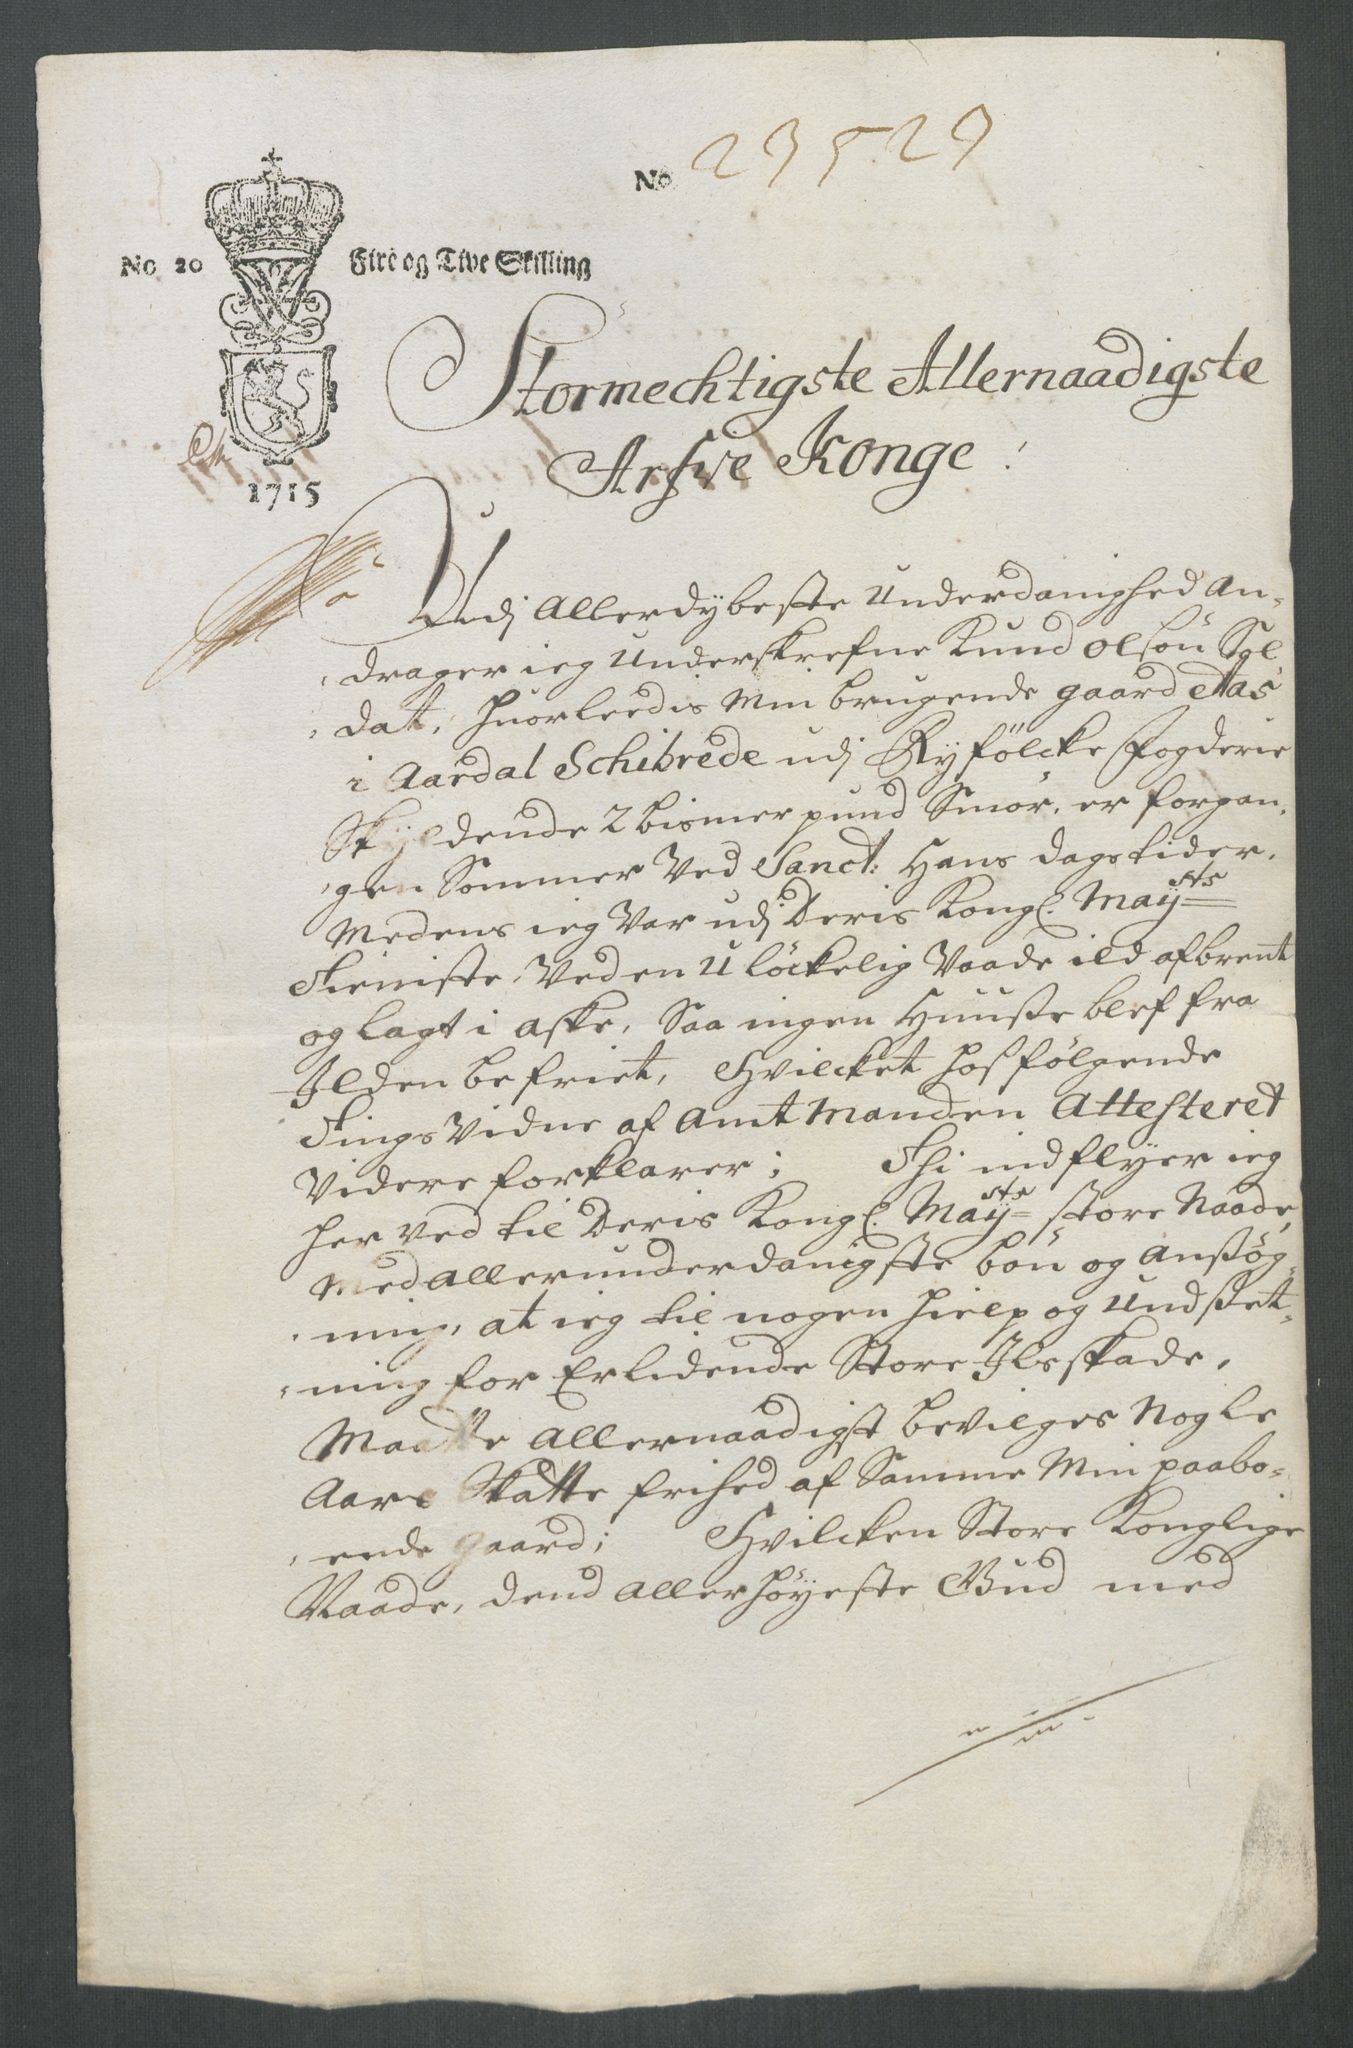 No 23529
No 20 Fire og Tive Skilling
1715
Stormechtigste Allernaadigste
Arfve Konge!
Udj Allerdybeste Underdanighed An-
drager ieg Underskrefne Knud Olsøn Sol-
dat, huorleedis Min brugende gaard Aas
i Aardal Schibrede udj Ryfölcke Fogderie
Skyldende 2 bismer pund Smör, er forgan-
gen Sommer Ved Sanct: Hans dags tider,
Medens ieg Var udj Deris Kongl. Mayts
Tieniste, Ved en Ulöckelig Vaade ild afbrent
og lagt i aske, Saa ingen Huusse blef fra
Ilden befriet, Hvilcket hosfölgende
Tings Vidne af Amt Manden Attesteret
Videre forklarer; Thi indflyer ieg
her ved til Deris Kongl. Mayts store Naade,
Med allerunderdanigste bön og Ansög-
ning, at ieg til nogen hielp og Undset-
ning for Erlidende Store Ilsskade,
Maatte Allernaadigst bevilges Nogle
Aars Skatte frihed af Samme Min paabo-
ende gaard; Hvilcken Store Konglige
Naade, dend allerhöyeste Gud med